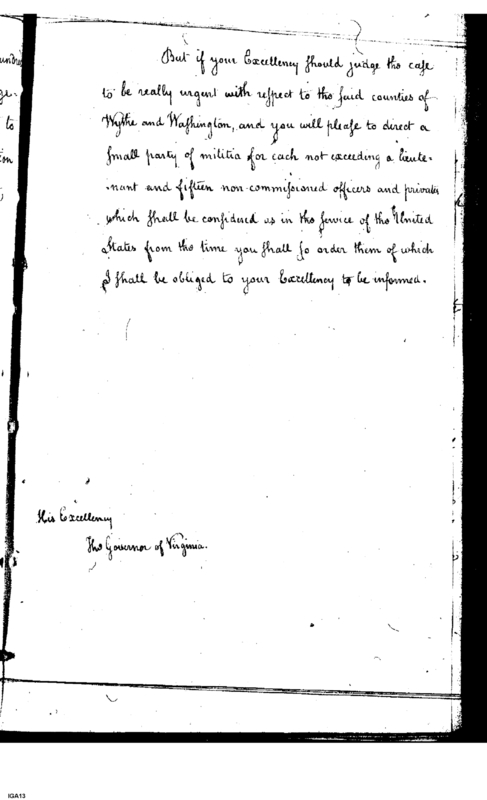 undred
ge-
to
But if your Excellency should judge the case
to be really urgent with respect to the said counties of
Wythe and Washington, and you will please to direct a
small party of militia for each not exceeding a lieute-
-nant and fifteen non-commissioned officers and privates
which shall be considered as in the service of the United
States from the time you shall so order them of which
I shall be obliged to your Excellency to be informed.
His Excellency
The Governor of Virginia.
IGA13